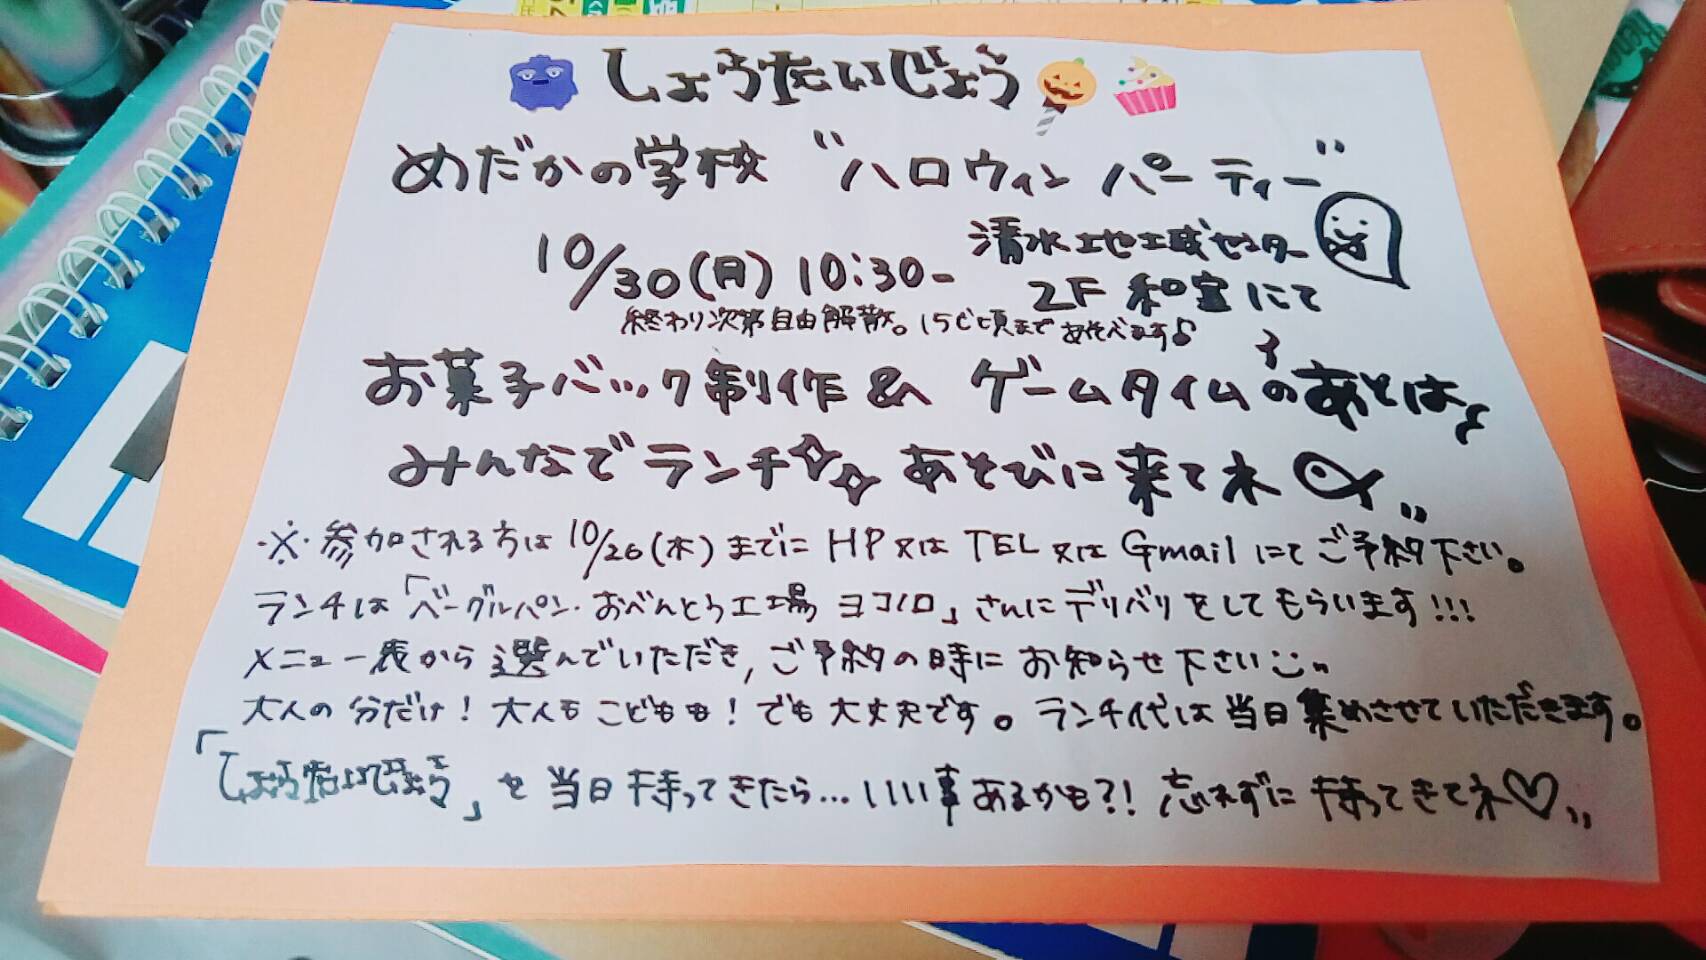 しょうたいじょう
めだかの学校 "ハロウィンパーティー"
10/30(月) 10:30-
清水地域センター
2F 和室にて
終わり次第自由解散。15じ頃まであそべます♪
お菓子バック制作& ゲームタイムのあとは
みんなでランチ あそびに来てネ
※参加される方は10/26(木)までにHP又はTEL又はGmailにてご予約下さい。
ランチは「ベーグルパン・おべんとう工場 ヨコノロ」さんにデリバリをしてもらいます!!!
メニュー表から選んでいただき,ご予約の時にお知らせ下さい
大人の分だけ!大人もこどもも!でも大丈夫です。ランチ代は当日集めさせていただきます。
「しょうたいじょう」を当日持ってきたら…いい事あるかも?!忘れずに持ってきてネ♡